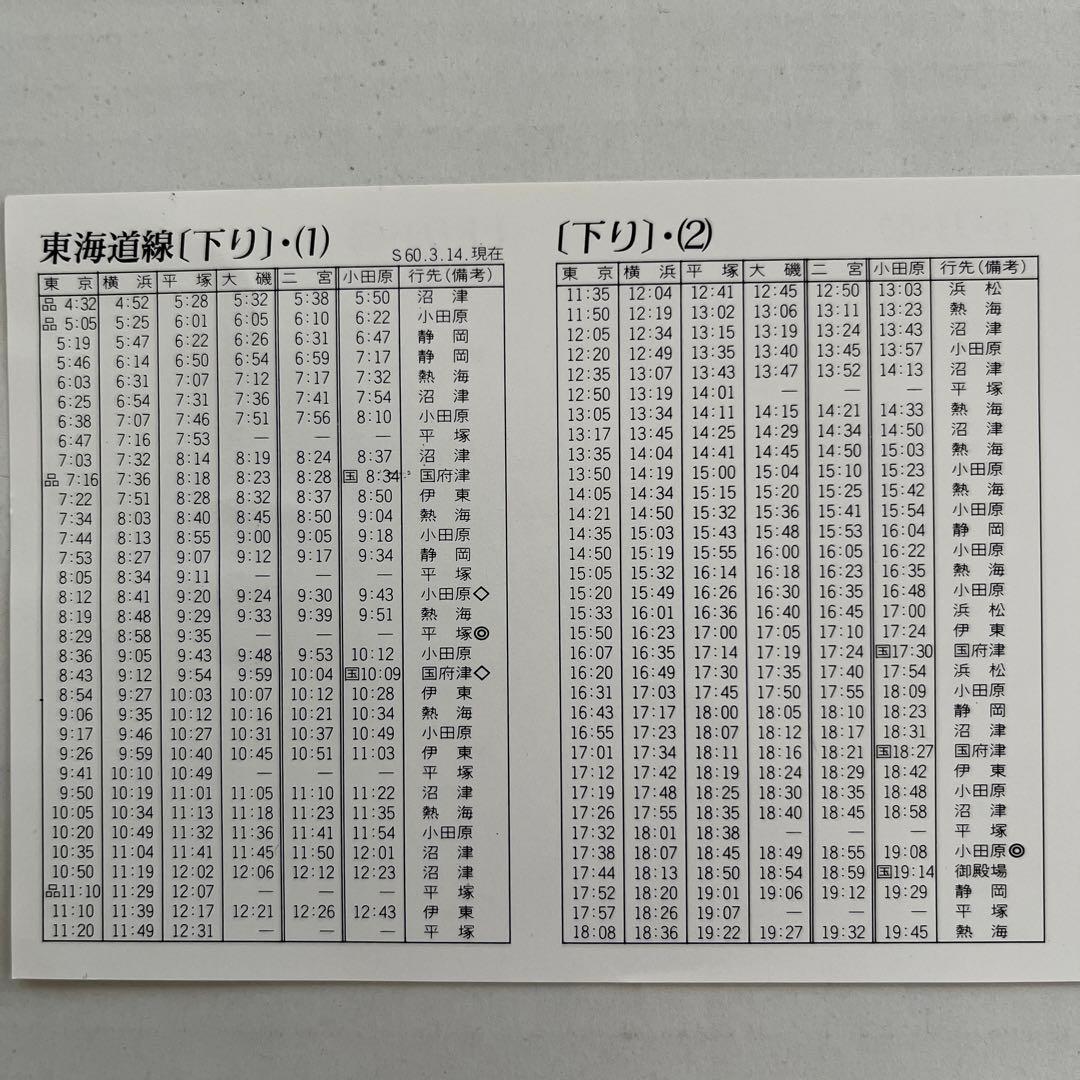 東海道線〔下り〕・(1)
S60.3.14.現在
東京 横浜 平塚 大磯 二宮 小田原 行先(備考)
品 4:32 4:52 5:28 5:32 5:38 5:50 沼津
品 5:05 5:25 6:01 6:05 6:10 6:22 小田原
5:19 5:47 6:22 6:26 6:31 6:47 静岡
5:46 6:14 6:50 6:54 6:59 7:17 静岡
6:03 6:31 7:07 7:12 7:17 7:32 熱海
6:25 6:54 7:31 7:36 7:41 7:54 沼津
6:38 7:07 7:46 7:51 7:56 8:10 小田原
6:47 7:16 7:53 — — — 平塚
7:03 7:32 8:14 8:19 8:24 8:37 沼津
品 7:16 7:36 8:18 8:23 8:28 国 8:34 国府津
7:22 7:51 8:28 8:32 8:37 8:50 伊東
7:34 8:03 8:40 8:45 8:50 9:04 熱海
7:44 8:13 8:55 9:00 9:05 9:18 小田原
7:53 8:27 9:07 9:12 9:17 9:34 静岡
8:05 8:34 9:11 — — — 平塚
8:12 8:41 9:20 9:24 9:30 9:43 小田原◇
8:19 8:48 9:29 9:33 9:39 9:51 熱海
8:29 8:58 9:35 — — — 平塚◎
8:36 9:05 9:43 9:48 9:53 10:12 小田原
8:43 9:12 9:54 9:59 10:04 国10:09 国府津◇
8:54 9:27 10:03 10:07 10:12 10:28 伊東
9:06 9:35 10:12 10:16 10:21 10:34 熱海
9:17 9:46 10:27 10:31 10:37 10:49 小田原
9:26 9:59 10:40 10:45 10:51 11:03 伊東
9:41 10:10 10:49 — — — 平塚
9:50 10:19 11:01 11:05 11:10 11:22 沼津
10:05 10:34 11:13 11:18 11:23 11:35 熱海
10:20 10:49 11:32 11:36 11:41 11:54 小田原
10:35 11:04 11:41 11:45 11:50 12:01 沼津
10:50 11:19 12:02 12:06 12:12 12:23 沼津
品11:10 11:29 12:07 — — — 平塚
11:10 11:39 12:17 12:21 12:26 12:43 伊東
11:20 11:49 12:31 — — — 平塚
〔下り〕・(2)
東京 横浜 平塚 大磯 二宮 小田原 行先(備考)
11:35 12:04 12:41 12:45 12:50 13:03 浜松
11:50 12:19 13:02 13:06 13:11 13:23 熱海
12:05 12:34 13:15 13:19 13:24 13:43 沼津
12:20 12:49 13:35 13:40 13:45 13:57 小田原
12:35 13:07 13:43 13:47 13:52 14:13 沼津
12:50 13:19 14:01 — — — 平塚
13:05 13:34 14:11 14:15 14:21 14:33 熱海
13:17 13:45 14:25 14:29 14:34 14:50 沼津
13:35 14:04 14:41 14:45 14:50 15:03 熱海
13:50 14:19 15:00 15:04 15:10 15:23 小田原
14:05 14:34 15:15 15:20 15:25 15:42 熱海
14:21 14:50 15:32 15:36 15:41 15:54 小田原
14:35 15:03 15:43 15:48 15:53 16:04 静岡
14:50 15:19 15:55 16:00 16:05 16:22 小田原
15:05 15:32 16:14 16:18 16:23 16:35 熱海
15:20 15:49 16:26 16:30 16:35 16:48 小田原
15:33 16:01 16:36 16:40 16:45 17:00 浜松
15:50 16:23 17:00 17:05 17:10 17:24 伊東
16:07 16:35 17:14 17:19 17:24 国17:30 国府津
16:20 16:49 17:30 17:35 17:40 17:54 浜松
16:31 17:03 17:45 17:50 17:55 18:09 小田原
16:43 17:17 18:00 18:05 18:10 18:23 静岡
16:55 17:23 18:07 18:12 18:17 18:31 沼津
17:01 17:34 18:11 18:16 18:21 国18:27 国府津
17:12 17:42 18:19 18:24 18:29 18:42 伊東
17:19 17:48 18:25 18:30 18:35 18:48 小田原
17:26 17:55 18:35 18:40 18:45 18:58 沼津
17:32 18:01 18:38 — — — 平塚
17:38 18:07 18:45 18:49 18:55 19:08 小田原◎
17:44 18:13 18:50 18:54 18:59 国19:14 御殿場
17:52 18:20 19:01 19:06 19:12 19:29 静岡
17:57 18:26 19:07 — — — 平塚
18:08 18:36 19:22 19:27 19:32 19:45 熱海